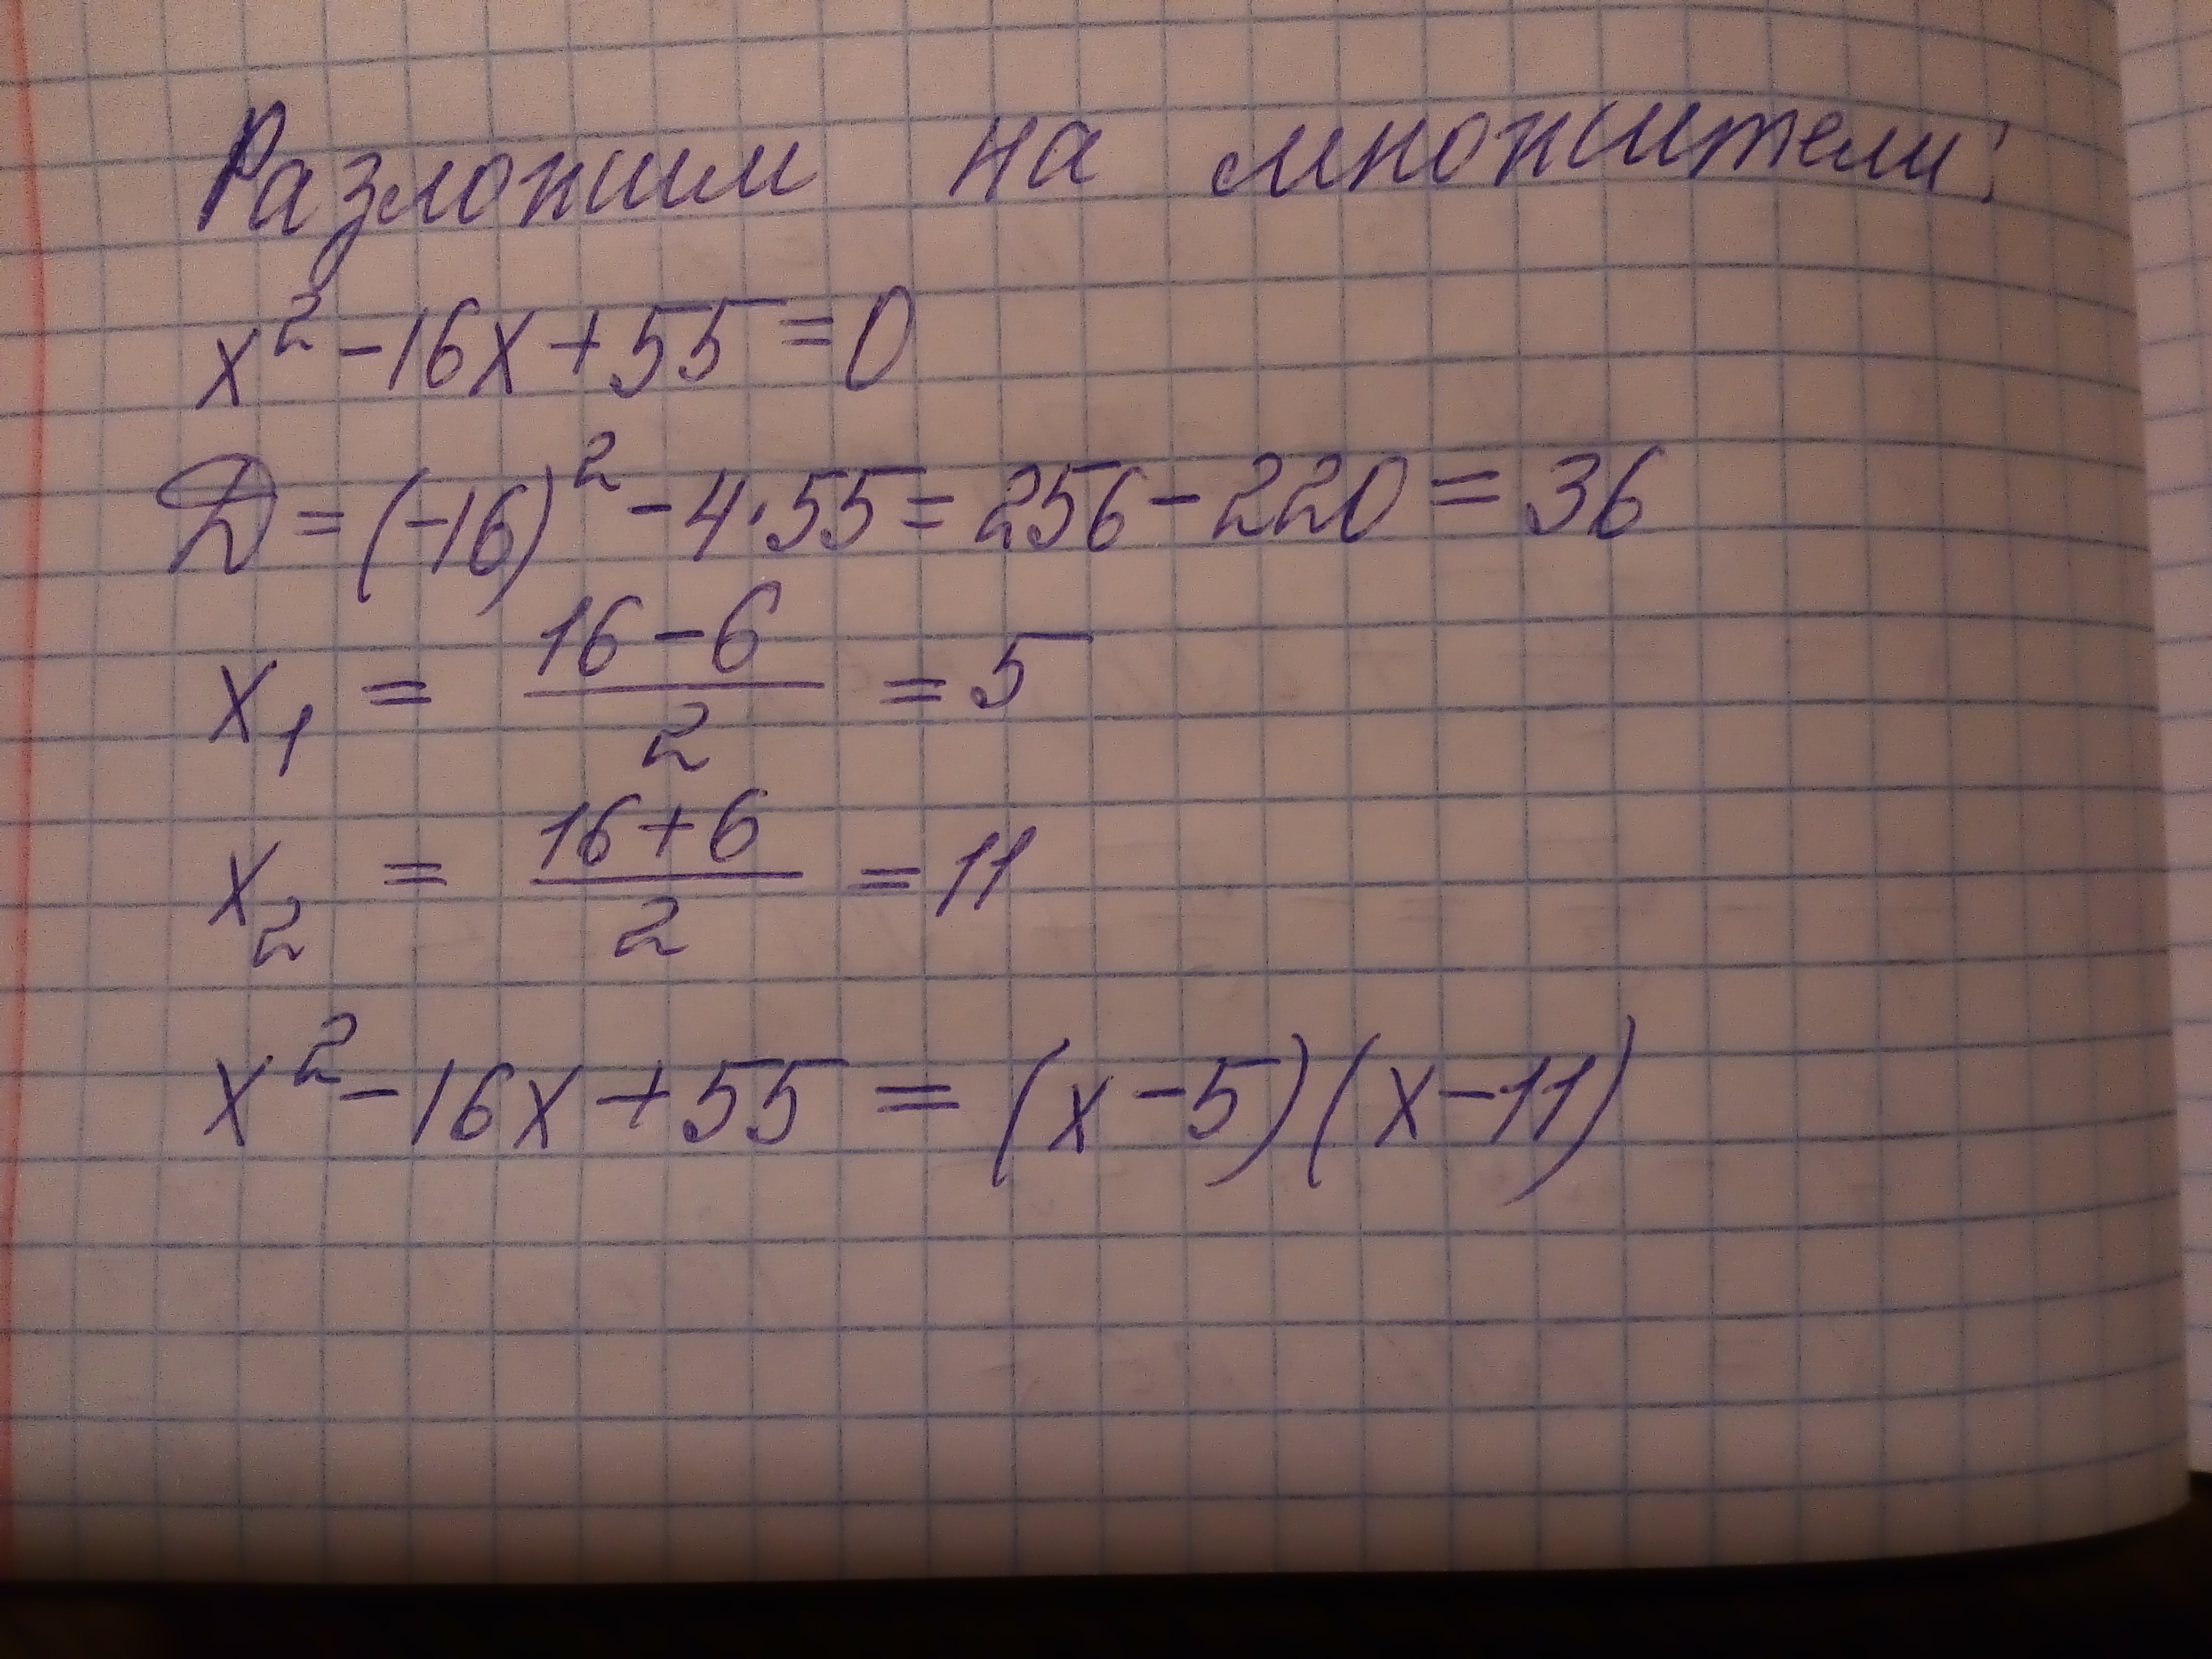 Разложим на множители:
x² - 16x + 55 = 0
D = (-16)² - 4·55 = 256 - 220 = 36
x₁ = (16 - 6)/2 = 5
x₂ = (16 + 6)/2 = 11
x² - 16x + 55 = (x - 5)(x - 11)